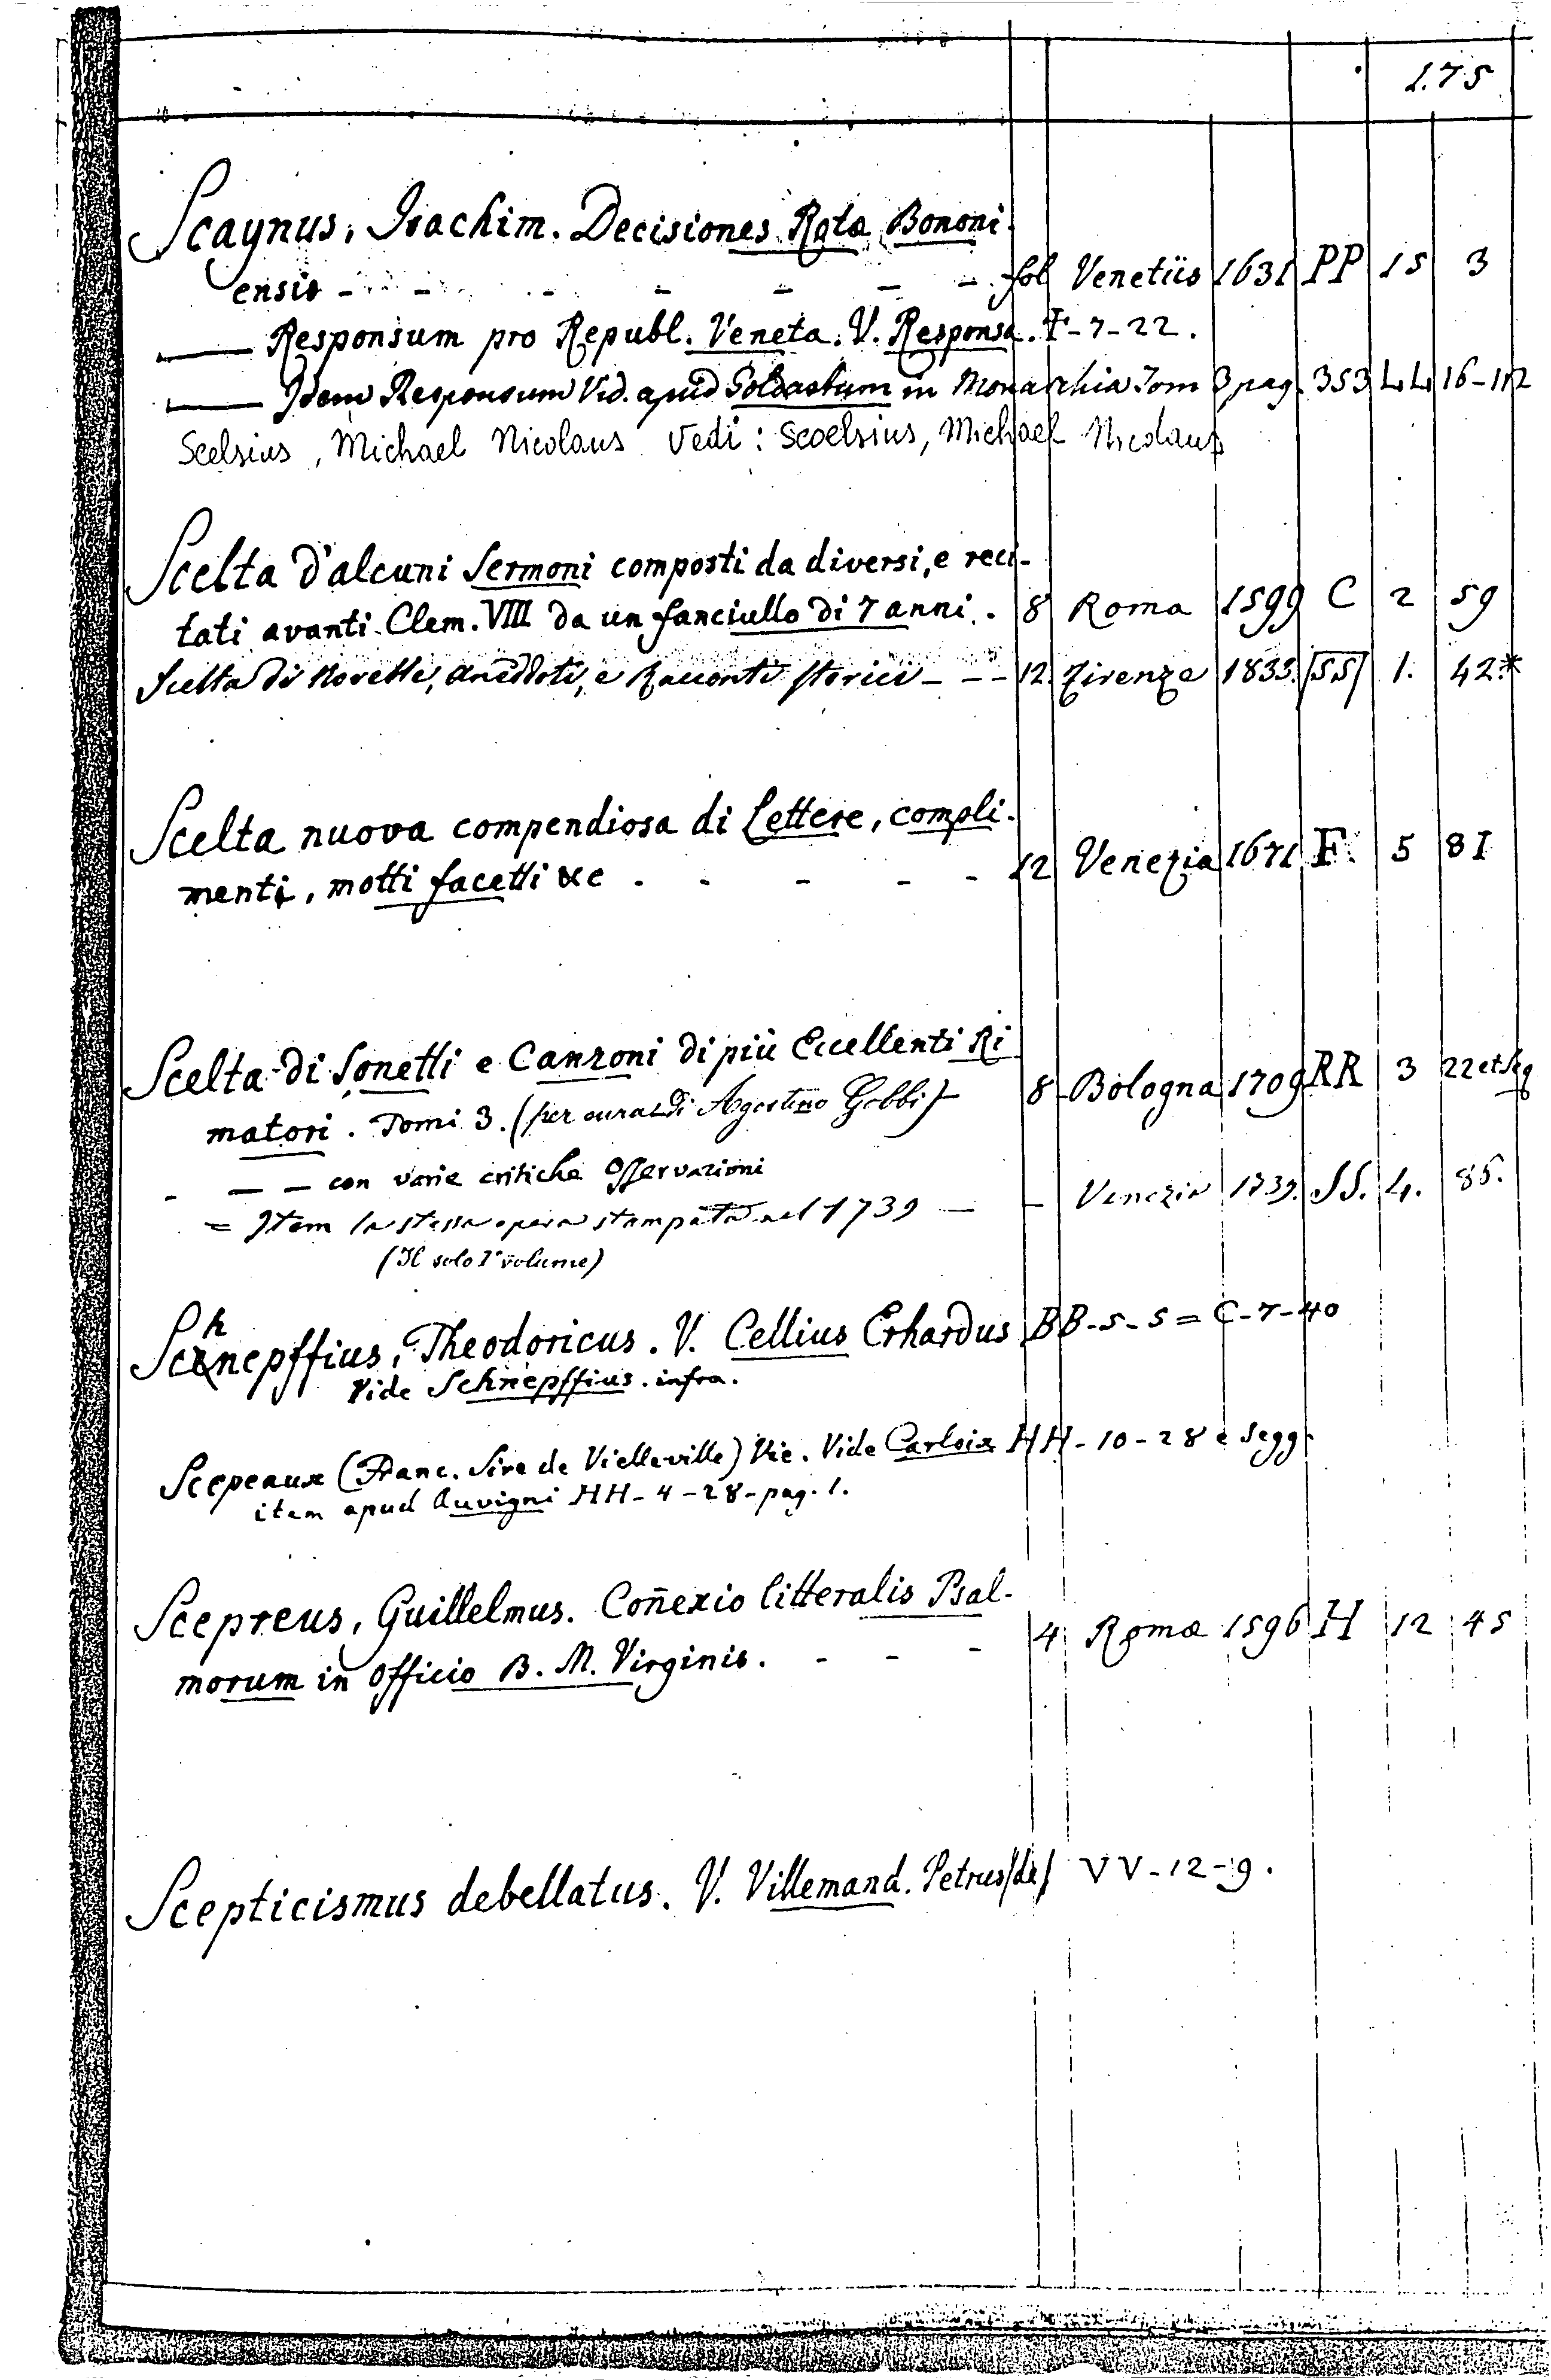 175
Scaynus, Ioachim. Decisiones Rotæ Bononi-
ensis - - - - - - - fol Venetiis 1631 PP 15 3
—— Responsum pro Republ. Veneta. V. Responsa. F-7-22.
—— Idem Responsum Vid. apud Goldastum in Monarchia Tom 3 pag. 353 LL 16-112
Scelsius, Michael Nicolaus Vedi: Scoelsius, Michael Nicolaus
Scelta d'alcuni Sermoni composti da diversi, e reci-
tati avanti Clem. VIII da un fanciullo di 7 anni. 8 Roma 1599 C 2 59
Scelta di Novelle, Aneddoti, e Racconti storici - - - 12 Firenze 1833. SS 1. 42.*
Scelta nuova compendiosa di Lettere, compli-
menti, motti facetti &c . - - - - 12 Venezia 1671 F. 5 81
Scelta di Sonetti e Canzoni di più Eccellenti Ri
matori. Tomi 3. (per cura di Agostino Gobbi) 8 Bologna 1709 RR 3 22 et seq
- — — — con varie critiche Osservazioni
= Item la stessa opera stampata nel 1739 — — Venezia 1739. SS. 4. 85.
(Il solo 1° volume)
Schnepffius, Theodoricus. V. Cellius Erhardus BB-5-5 = C-7-40
Vide Schnepffius. infra.
Scepeaux (Franc. Sire de Vielleville) Vie. Vide Carloix HH-10-28 e segg.
item apud Auvigni HH-4-28-pag. 1.
Scepreus, Guillelmus. Coñexio litteralis Psal-
morum in Officio B. M. Virginis. - - - 4 Romæ 1596 H 12 45
Scepticismus debellatus. V. Villemand. Petrus (de) VV-12-9.